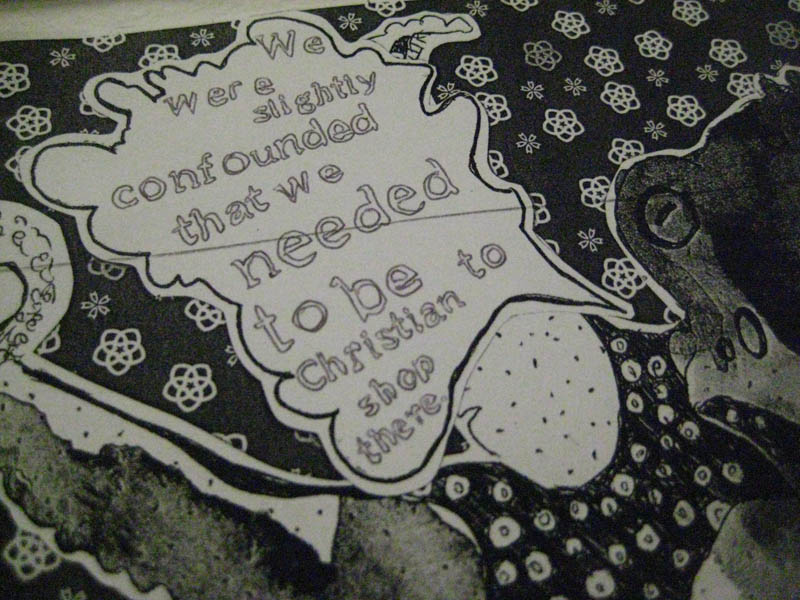 We
were
slightly
confounded
that we
needed
to be
Christian to
shop
there.